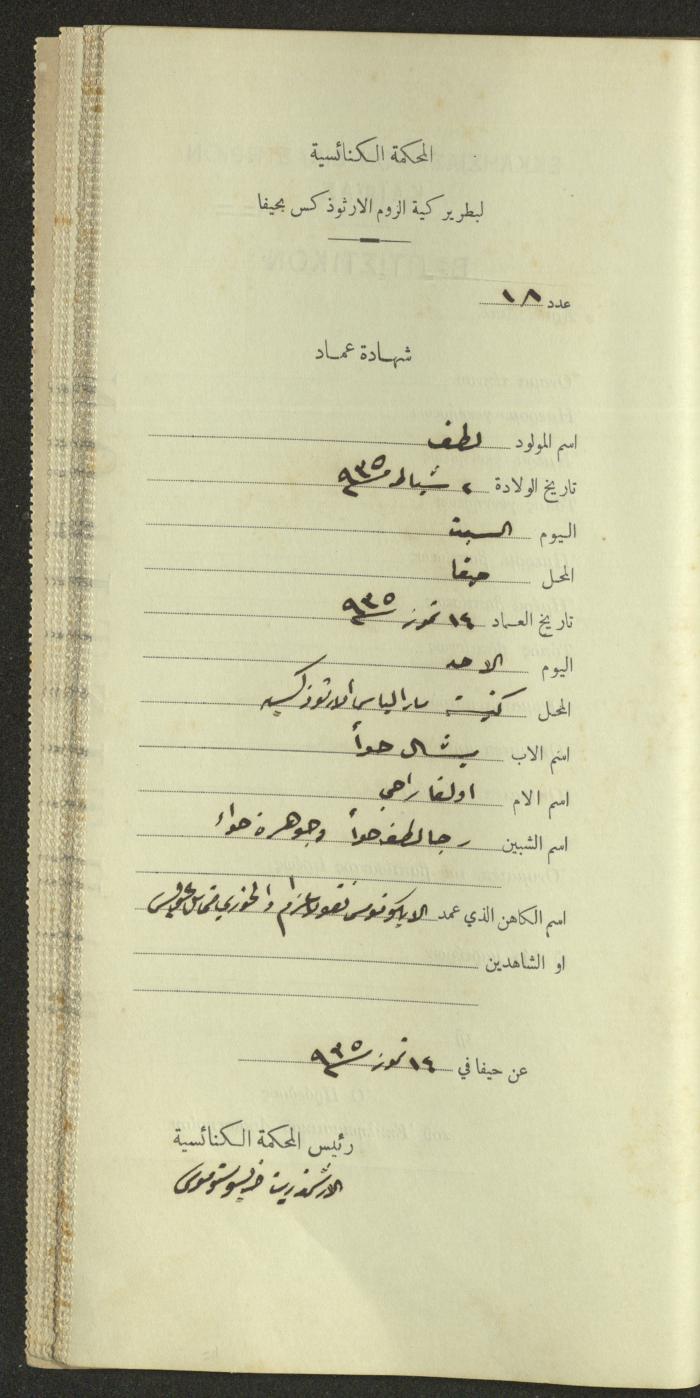 المحكمة الكنائسية
لبطريركية الروم الارثوذكس بحيفا
عدد ١٨
شهادة عماد
اسم المولود لطف
تاريخ الولادة ٢ شباط ٩٣٥
اليوم السبت
المحل حيفا
تاريخ العماد ١٤ تموز ٩٣٥
اليوم الاحد
المحل كنيسة مار الياس الارثوذكسيه
اسم الاب ميشال حوأ
اسم الام اولغا راجي
اسم الشبين رجا لطف حوأ وجوهرة حواء
اسم الكاهن الذي عمد الايكونوموس نقولا والخوري
او الشاهدين
عن حيفا في ١٤ تموز ٩٣٥
رئيس المحكمة الكنائسية
الارشمندريت خريسوستوموس